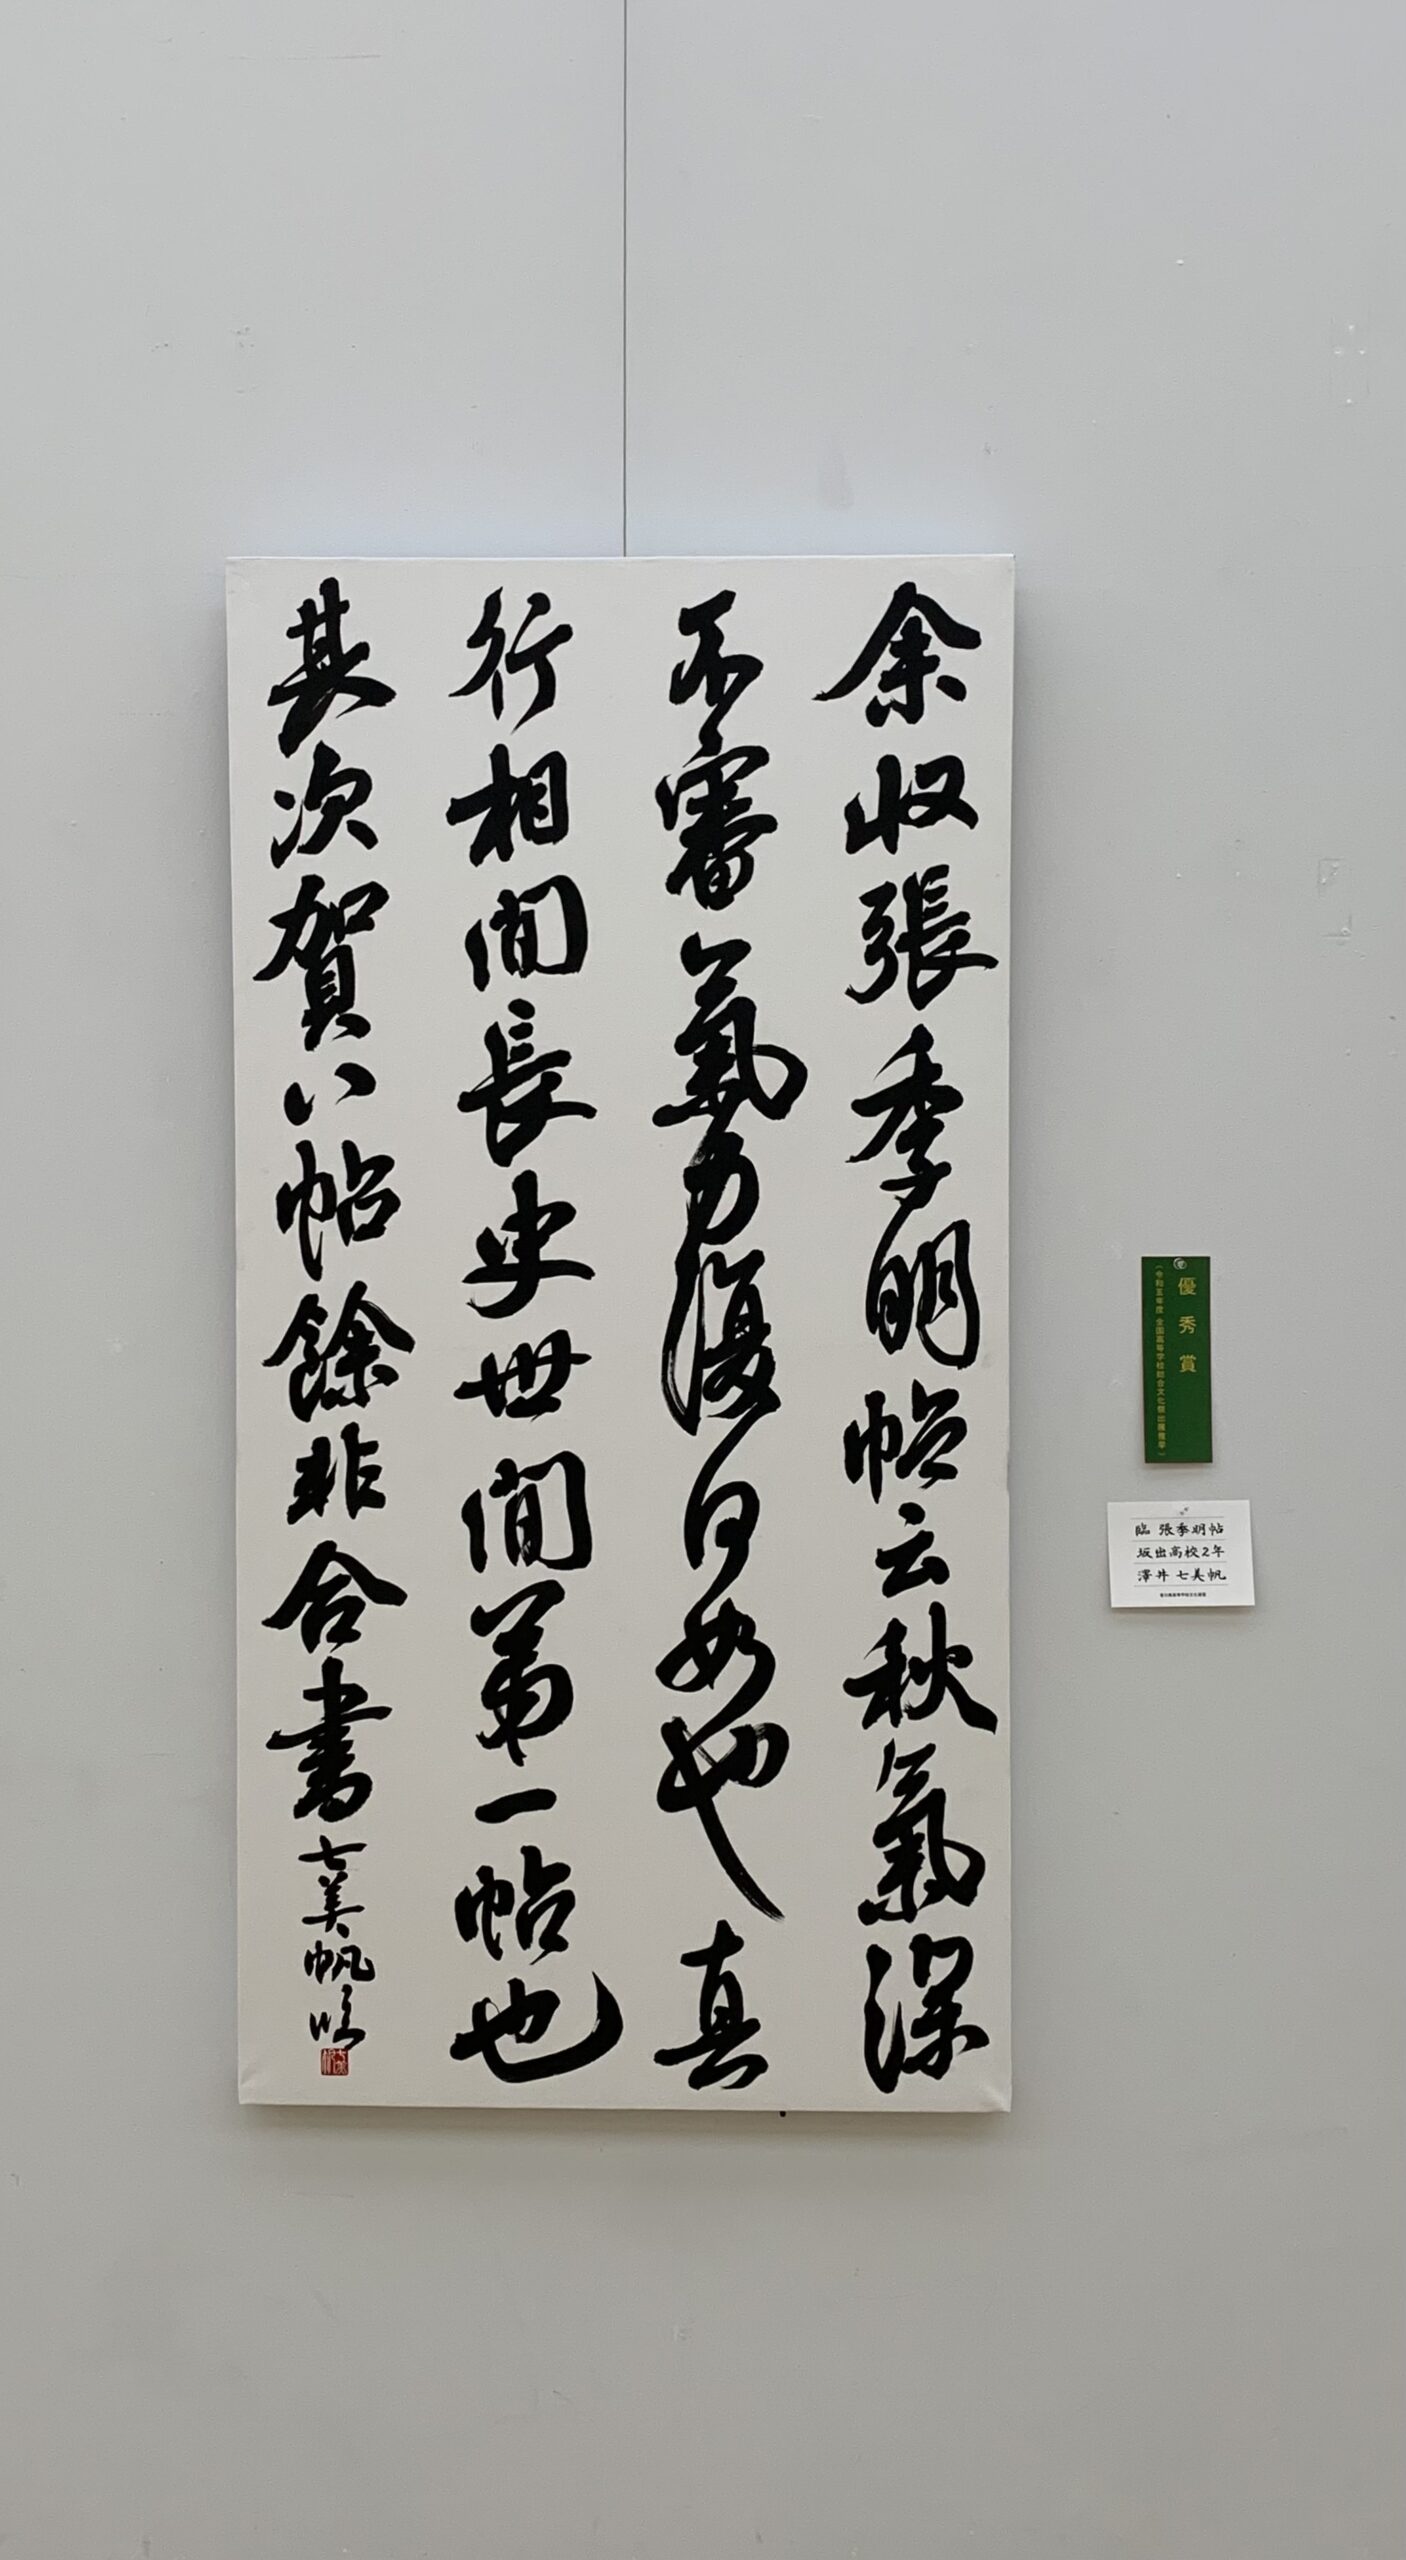 余収張季明帖云秋氣深
不審氣力復何如也真
行相間長史世間第一帖也
其次賀八帖餘非合書
七美帆臨
優秀賞
(令和五年度 全国高等学校総合文化祭出品推薦)
臨 張季明帖
坂出高校2年
澤井 七美帆
香川県高等学校文化連盟